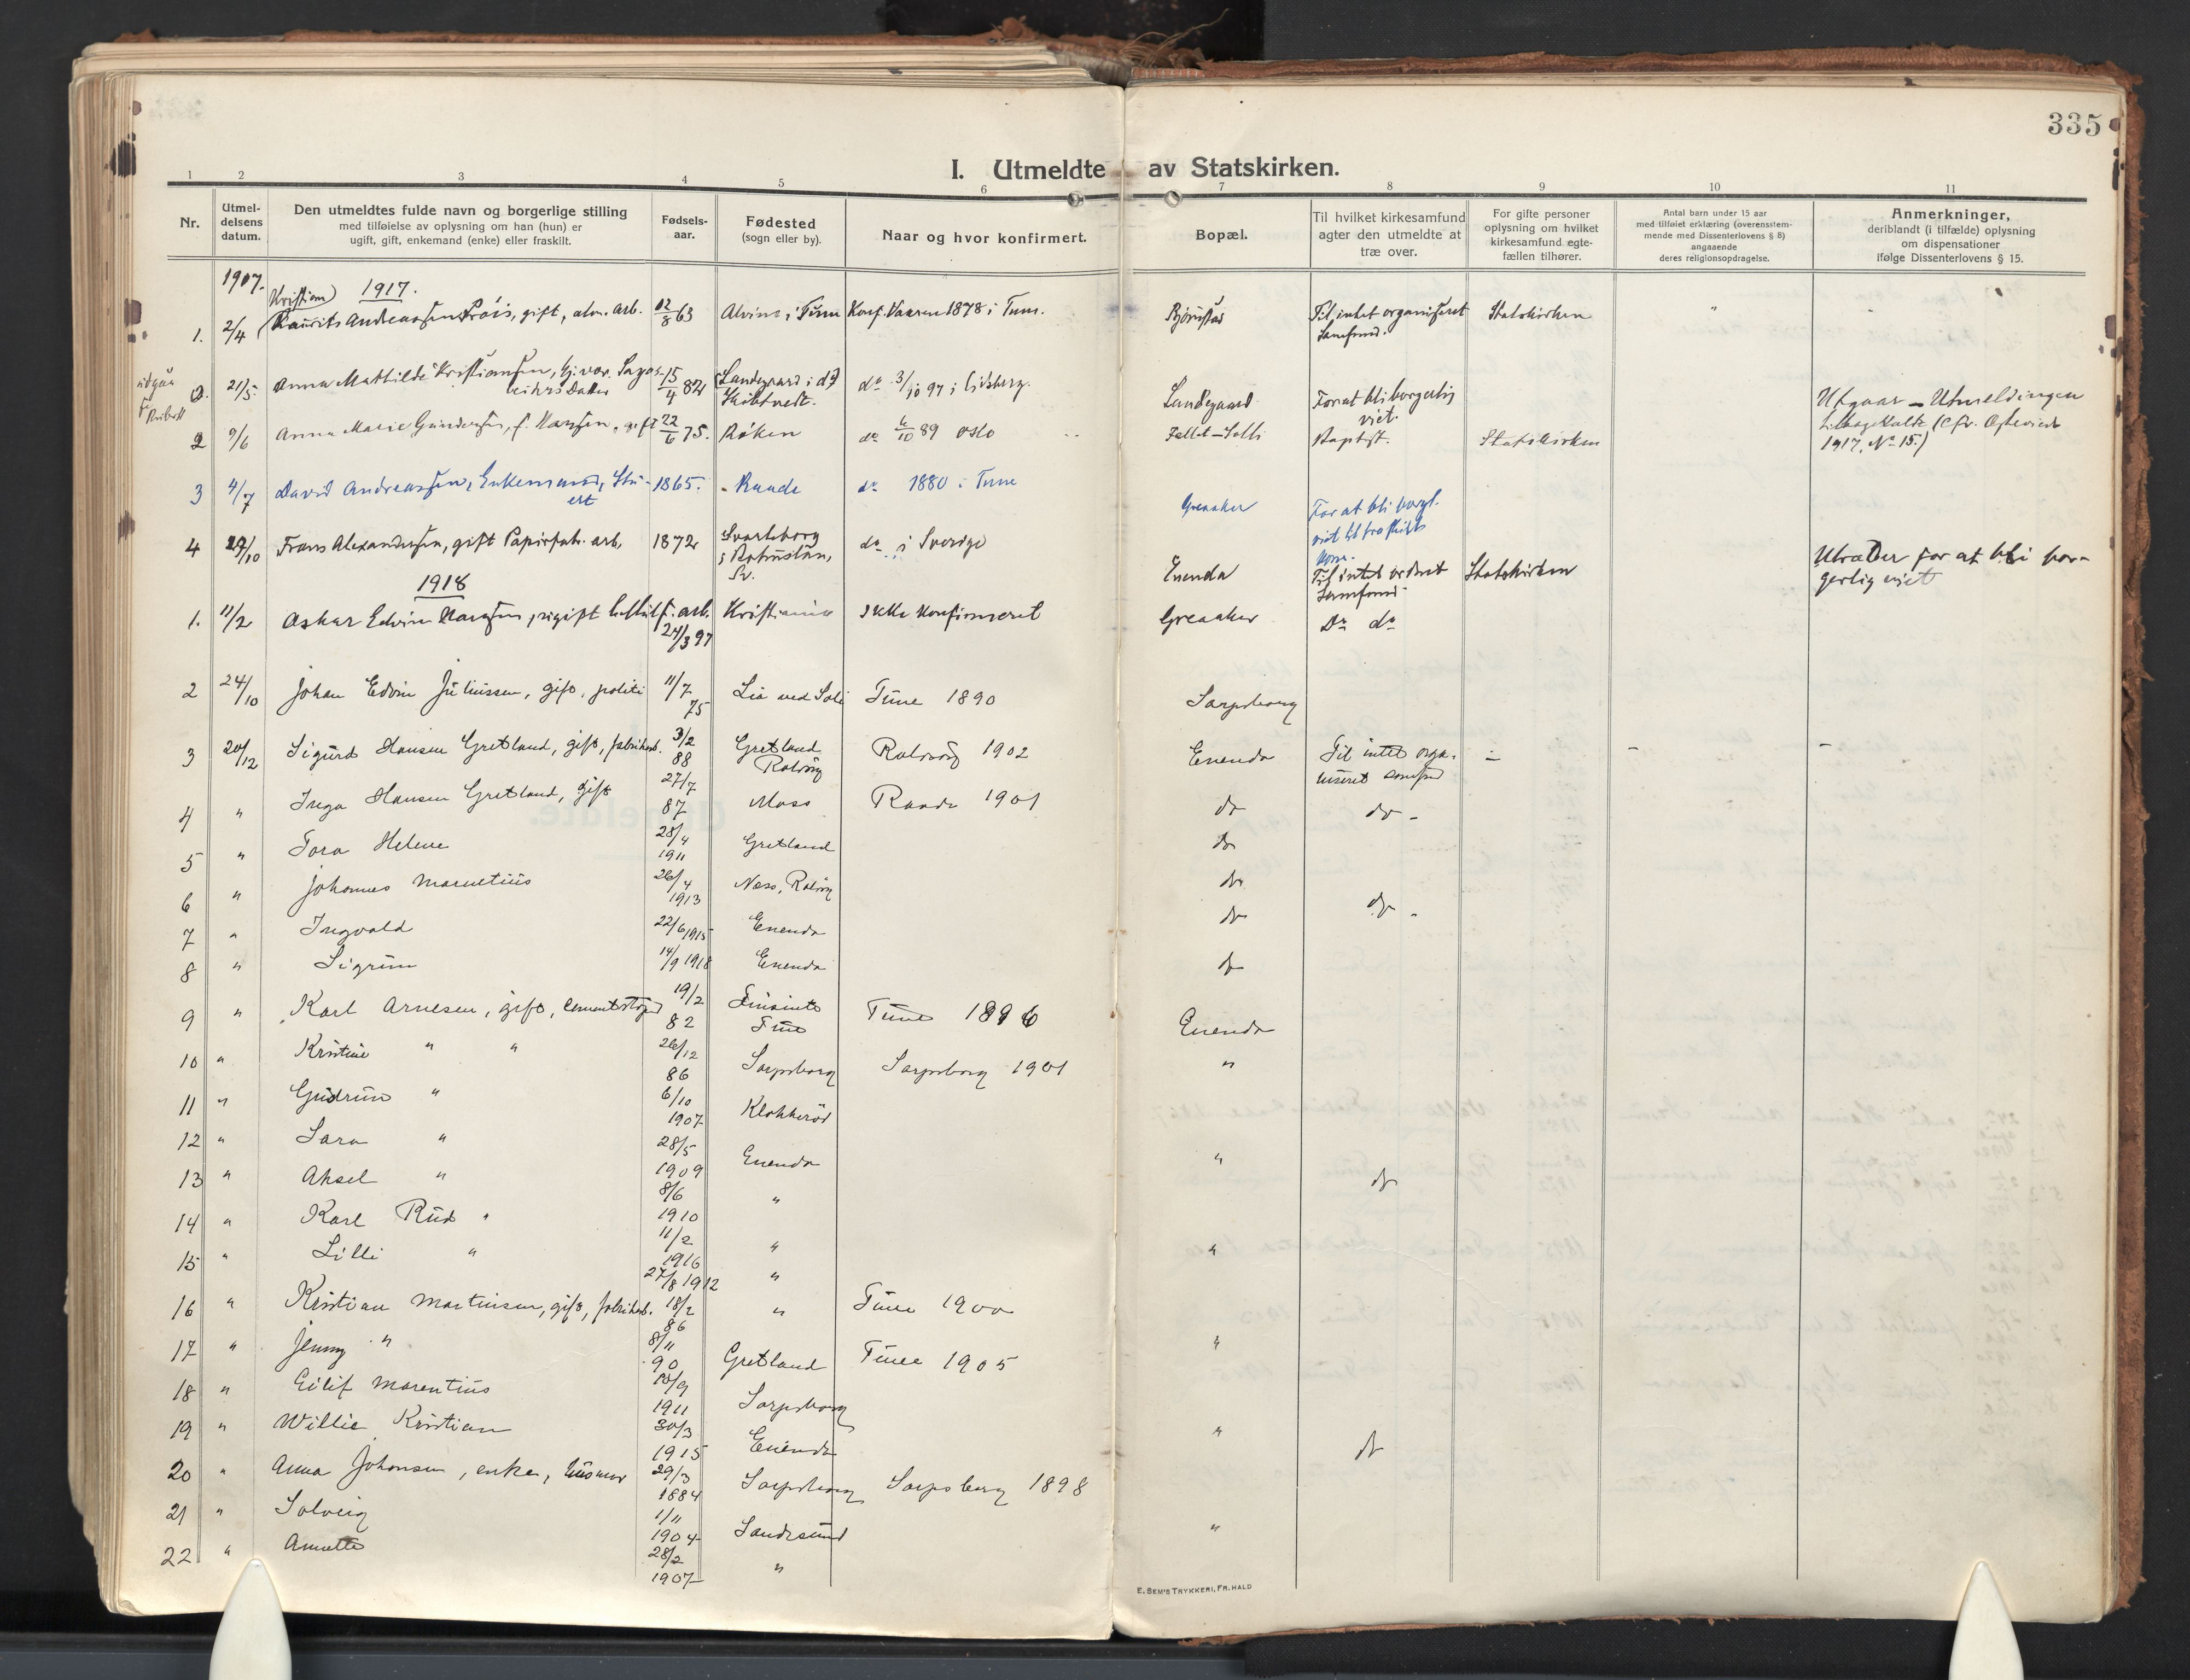 335
I. Utmeldte av Statskirken.
1 2 3 4 5 6 7 8 9 10 11
Nr.
Utmel-
delsens
datum.
Den utmeldtes fulde navn og borgerlige stilling
med tilføielse av oplysning om han (hun) er
ugift, gift, enkemand (enke) eller fraskilt.
Fødsels-
aar.
Fødested
(sogn eller by).
Naar og hvor konfirmert.
Bopæl.
Til hvilket kirkesamfund
agter den utmeldte at
træ over.
For gifte personer
oplysning om hvilket
kirkesamfund egte-
fællen tilhører.
Antal barn under 15 aar
med tilføiet erklæring (overensstem-
mende med Dissenterlovens § 8)
angaaende
deres religionsopdragelse.
Anmerkninger,
deriblandt (i tilfælde) oplysning
om dispensationer
ifølge Dissenterlovens § 15.
1907.
Kristian) 1917.
1. 2/4 Andreassen, gift, alm. arb. 12/8 63 i Tune Konf. Vaaren 1878 i Tune. Bjørnstad Til intet organiseret Statskirken "
Samfund.
21/5 Anna Mathilde Kristiansen, 15/4 82 Landsgaard i Landsgaard For at bli borgerlig Utgaar - Utmeldingen
datter Skibtvedt. do 3/10 97 i Eidsberg. viet. tilbagekaldt (cfr.
2 9/6 Anna Marie Gundersen, f. Hansen, gift 22/6 75. Røken do 6/10 89 Oslo Baptist. Statskirken 1917, No 15.)
3 4/7 David Andreassen, Enkemand, 1865. Raade do 1880 i Tune Greaaker For at bli borgl.
viet til fraskilt
4 29/10 Frans Alexandersen, gift Papirfab. arb. 1872 Svarteborg do i Sverige Enenda Til intet ordnet Statskirken Utræder for at bli bor-
Sv. Samfund. gerlig viet
1918
1. 11/2 Oskar Edvin Hansen, ugift arb. 27/3 97 Kristiania Ikke konfirmeret Greaaker Do do
2 24/10 Johan Edvin Juliussen, gift, politi 11/7 75 Lia ved Soli Tune 1890 Sarpsborg
3 20/12 Sigurd Hansen Gretland, gift, fabrikarb. 3/2 88 Gretland Rolvsøy 1902 Enenda Til intet orga- - - -
Rolvsøy niseret samfund
4 " Inga Hansen Gretland, gift 27/7 87 Moss Raade 1901 do do -
5 " Tora Helene 28/4 1911 Gretland do
6 " Johannes Marentius 26/4 1913 Næs, Rolvsøy do
7 " Ingvald 22/6 1915 Enenda do do -
8 " Sigrun 14/9 1918 Enenda do
9 " Karl Arnesen, gift, cementstøper 19/2 82 Tune Tune 1896 Enenda
10 " Kristine " " 26/12 86 Sarpsborg Sarpsborg 1901 "
11 " Gudrun " 6/10 1907 Klokkerød
12 " Sara " 28/5 1909 Enenda "
13 " Aksel " 8/6 1910 " do
14 " Karl Rud " 11/2 1916 "
15 " Lilli " 27/8 1912 " "
16 " Kristian Martinsen, gift, fabrikarb. 18/2 86 " Tune 1900
17 " Jenny " 8/11 90 Gretland Tune 1905 "
18 " Eilif Marentius 10/9 1911 Sarpsborg
19 " Willie Kristian 30/3 1915 Enenda " do
20 " Anna Johansen, enke, husmor 29/3 1884 Sarpsborg Sarpsborg 1898
21 " Solveig 1/11 1904 Sandesund "
22 " Annette 28/2 1907 "
E. SEM'S TRYKKERI, FR.HALD